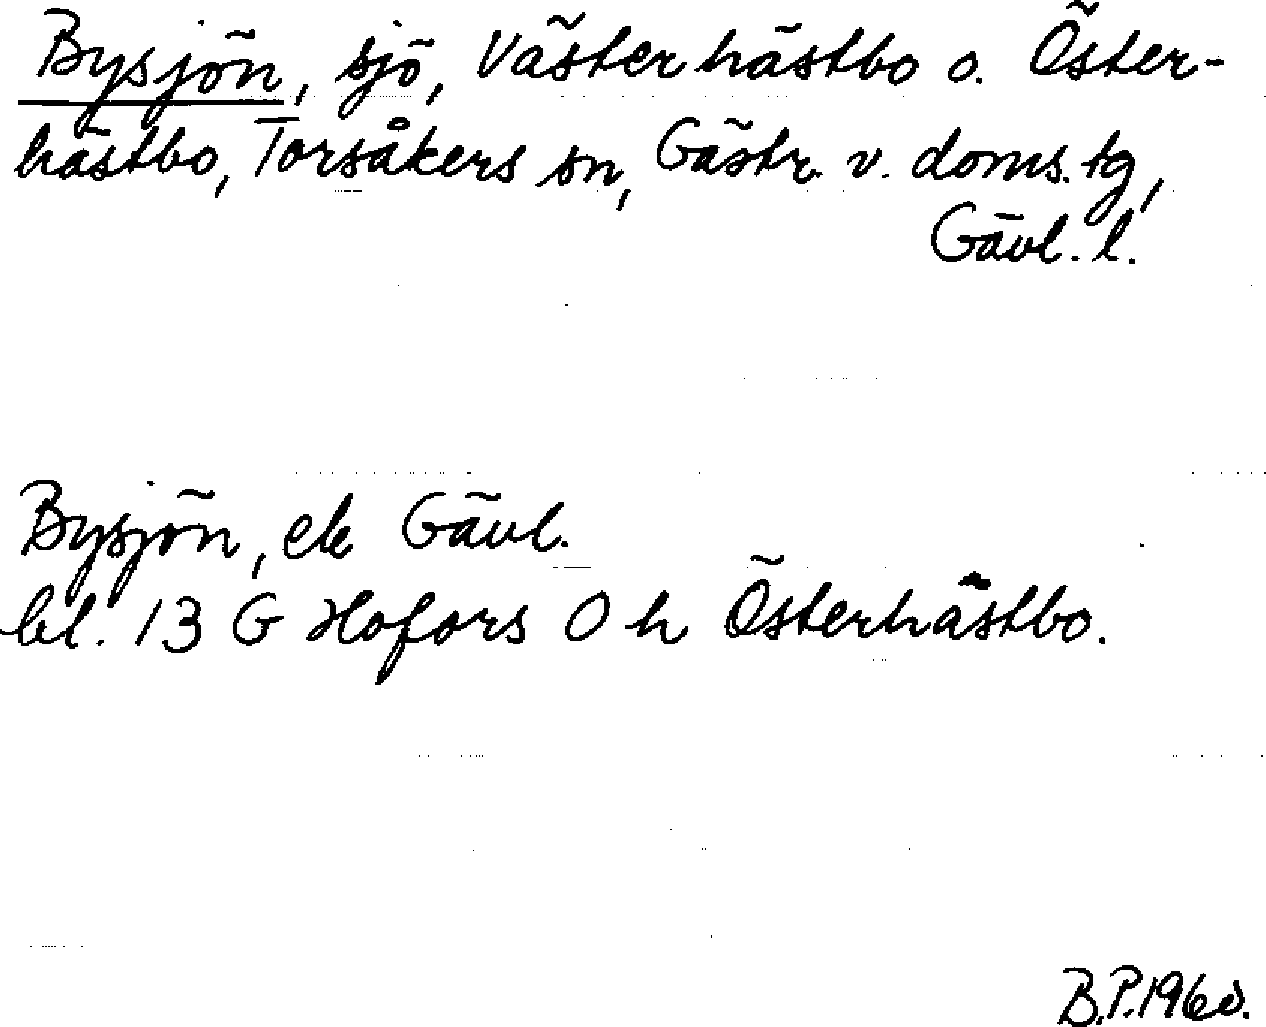 Bysjön, sjö, Västerhästbo o. Öster-
hästbo, Torsåkers sn, Gästr. v. doms. tg,
Gävl. l.
Bysjön, ek Gävl.
bl. 13 G Hofors O h Österhästbo.
B.P. 1960.